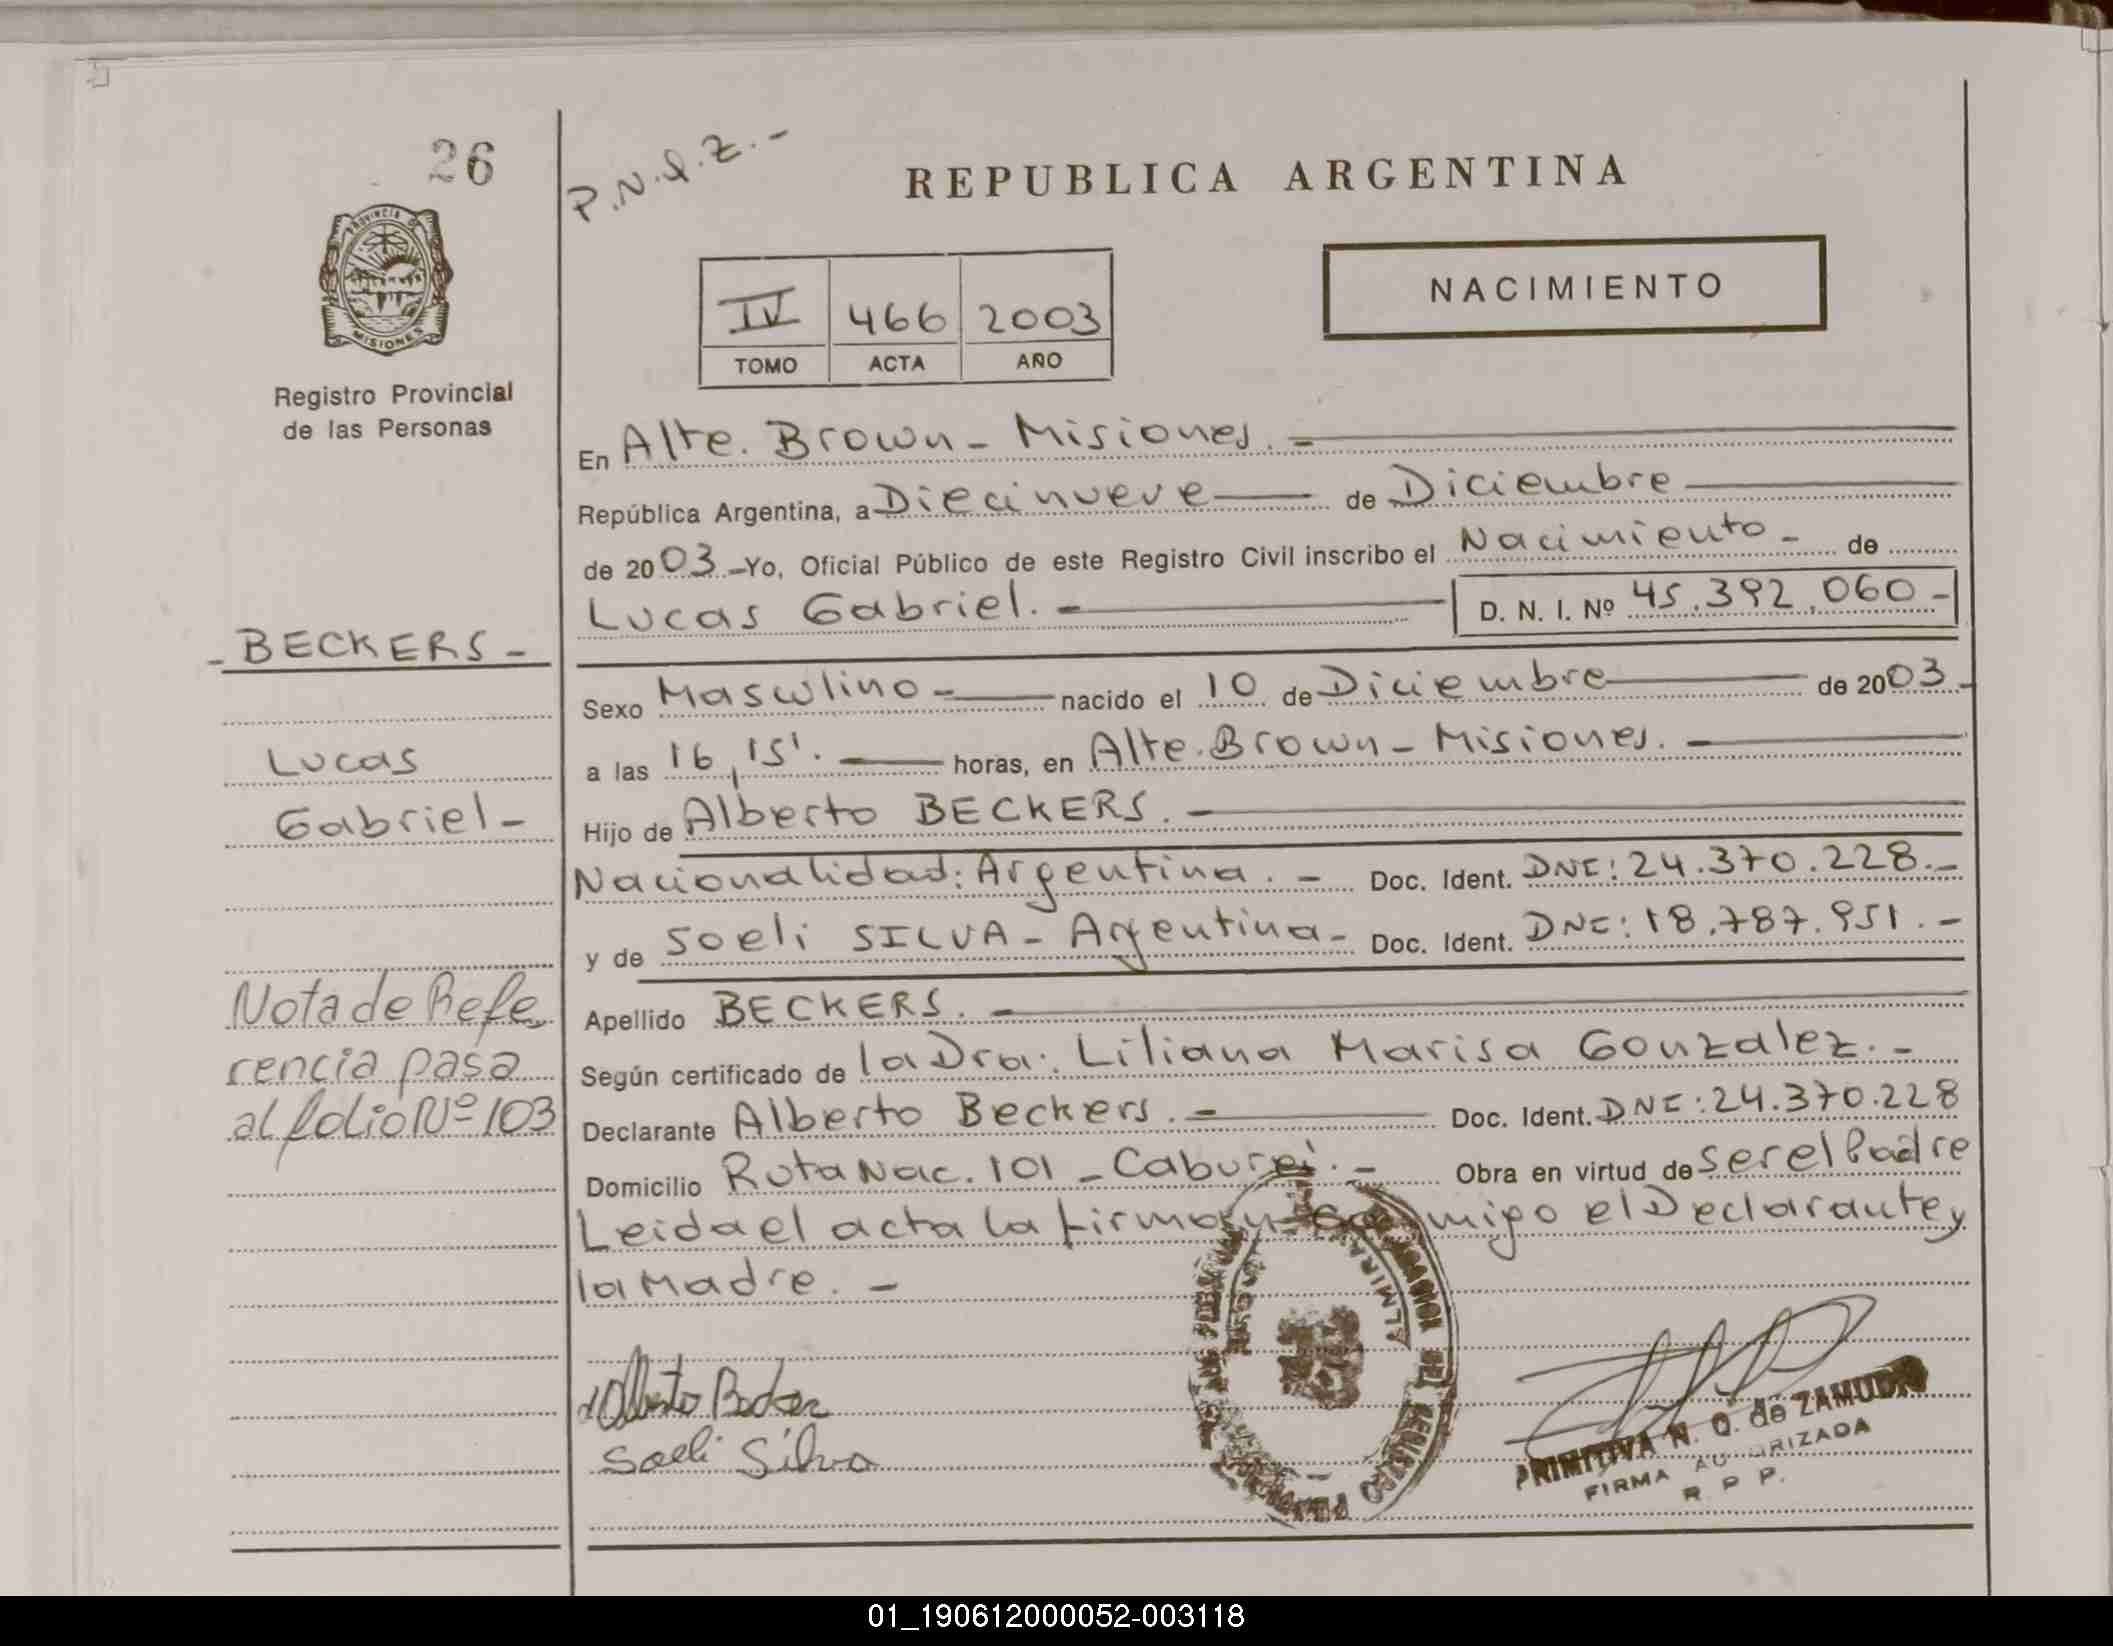 26
P.N.Q.Z.-
REPUBLICA ARGENTINA
PROVINCIA DE
MISIONES
NACIMIENTO
IV 466 2003
TOMO ACTA AÑO
Registro Provincial
de las Personas
En Alte. Brown - Misiones. -
República Argentina, a Diecinueve de Diciembre
de 2003 - Yo, Oficial Público de este Registro Civil inscribo el Nacimiento - de
Lucas Gabriel. - D. N. I. Nº 45.392.060 -
- BECKERS -
Sexo Masculino - nacido el 10 de Diciembre de 2003 -
Lucas
a las 16,15'. horas, en Alte. Brown - Misiones. -
Gabriel -
Hijo de Alberto BECKERS. -
Nacionalidad: Argentina. - Doc. Ident. DNI: 24.370.228. -
y de Soeli SILVA - Argentina - Doc. Ident. DNI: 18.787.951. -
Nota de Refe
rencia pasa
al folio Nº 103
Apellido BECKERS. -
Según certificado de la Dra. Liliana Marisa Gonzalez. -
Declarante Alberto Beckers. - Doc. Ident. DNI: 24.370.228
Domicilio Ruta Nac. 101 - Caburei. - Obra en virtud de ser el Padre
Leida el acta la firman conmigo el Declarante y
la Madre. -
Alberto Becker
Soeli Silva
PRIMITIVA N. Q. de ZAMUDIO
FIRMA AUTORIZADA
R. P. P.
01_190612000052-003118